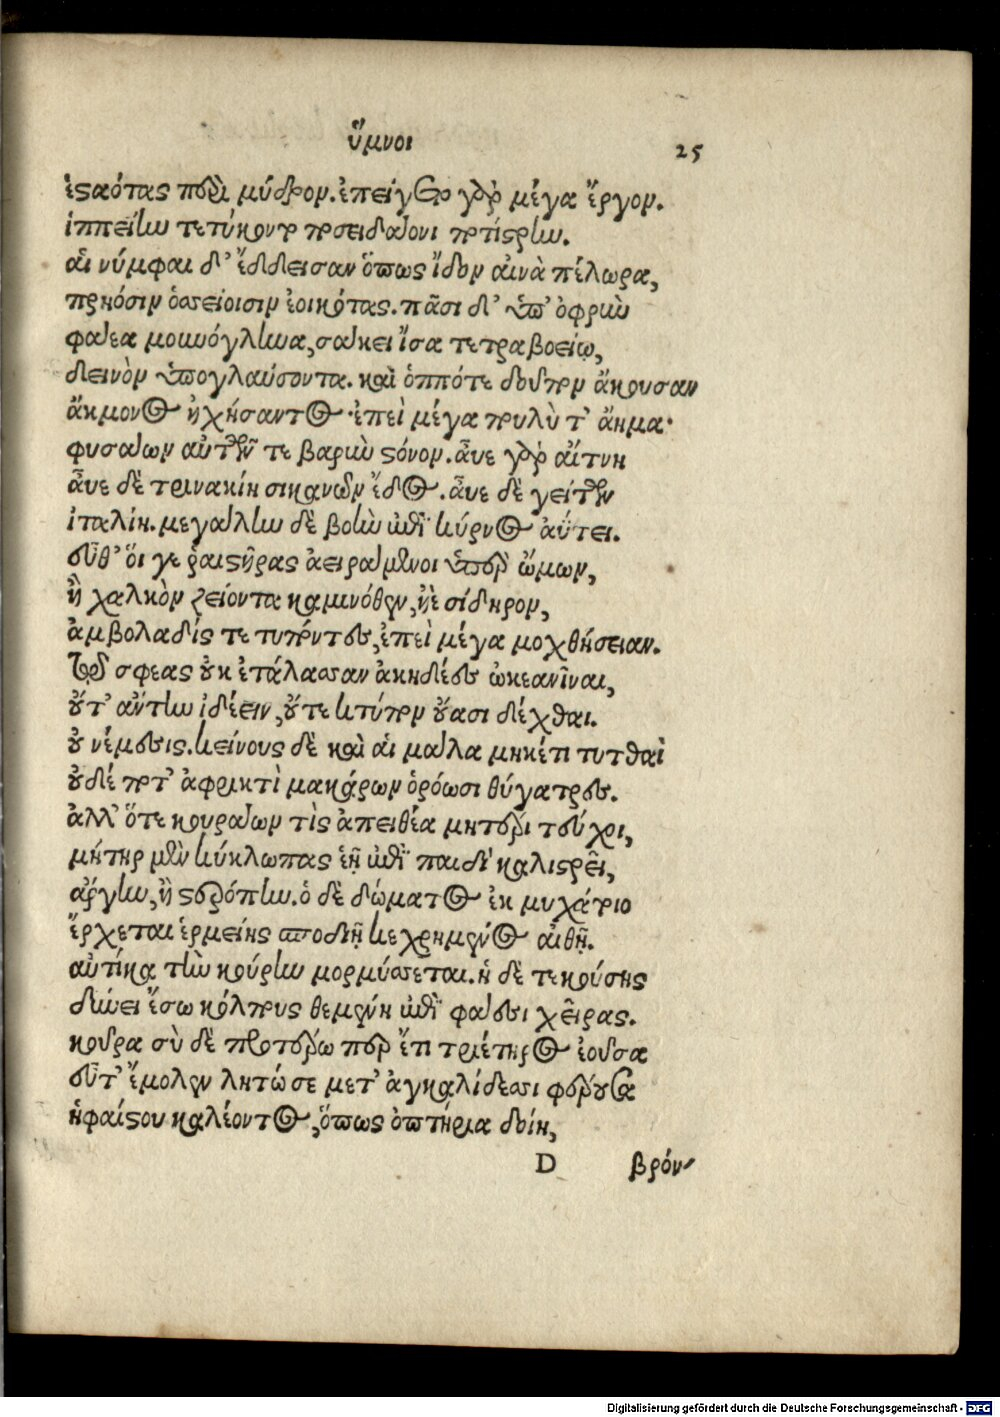 ὕμνοι 25
ἑσταότας περὶ μύδρον. ἐπείγετο γὰρ μέγα ἔργον.
ἱππείην τετύκοντο ποσειδάονι ποτίστρην.
αἱ νύμφαι δ' ἔδδεισαν ὅπως ἴδον αἰνὰ πέλωρα,
πρηόσιν ὀσσείοισιν ἐοικότας. πᾶσι δ' ὑπ' ὀφρὺν
φάεα μουνόγληνα, σάκει ἴσα τετραβοείῳ,
δεινὸν ὑπογλαύσοντα. καὶ ὁππότε δοῦπον ἄκουσαν
ἄκμονος ἠχήσαντος. ἐπεὶ μέγα πουλὺ τ' ἄημα·
φυσάων αὐτῶν τε βαρὺν στόνον. αὖε γὰρ αἴτνη
αὖε δὲ τρινακίη σικανῶν ἕδος. αὖε δὲ γείτων
ἰταλίη. μεγάλην δὲ βοὴν ἐπὶ κύρνος ἀΰτει.
εὖθ' ὅι γε ῥαιστῆρας ἀειράμενοι ὑπὲρ ὤμων,
ἢ χαλκὸν ζείοντα καμινόθεν, ἠὲ σίδηρον,
ἀμβολαδὶς τε τυπόντες, ἐπεὶ μέγα μοχθήσειαν.
τῷ σφεας οὐκ ἐτάλασσαν ἀκηδέες ὠκεανῖναι,
οὔτ' ἄντην ἰδέειν, οὔτε κτύπον οὔασι δέχθαι.
οὐ νέμεσις. κείνους δὲ καὶ αἱ μάλα μηκέτι τυτθαὶ
οὐδέ ποτ' ἀφρικτὶ μακάρων ὁρόωσι θύγατρες.
ἀλλ' ὅτε κουράων τὶς ἀπειθέα μητέρι τεύχοι,
μήτηρ μὲν κύκλωπας ἑῇ ἐπὶ παιδὶ καλιστρεῖ,
ἄργην, ἢ στερόπην. ὁ δὲ δώματος ἐκ μυχάτοιο
ἔρχεται ἑρμείης σποδιῇ κεχρημένος αἰθῇ.
αὐτίκα τὴν κούρην μορμύσσεται. ἡ δὲ τεκούσης
δύνει ἔσω κόλπους θεμένη ἐπὶ φάεσι χεῖρας.
κοῦρα σὺ δὲ προτέρω περ ἔτι τριέτηρος ἐοῦσα
εὖτ' ἔμολεν λητώ σε μετ' ἀγκαλίδεσσι φέρουσα
ἡφαίστου καλέοντος, ὅπως ὀπτήρια δοίη,
D βρόν
Digitalisierung gefördert durch die Deutsche Forschungsgemeinschaft - DFG